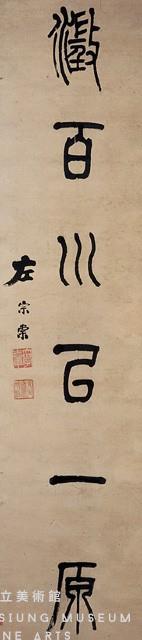 澂百川㠯一原
左宗棠
立美術館
SIUNG MUSEUM
NE ARTS